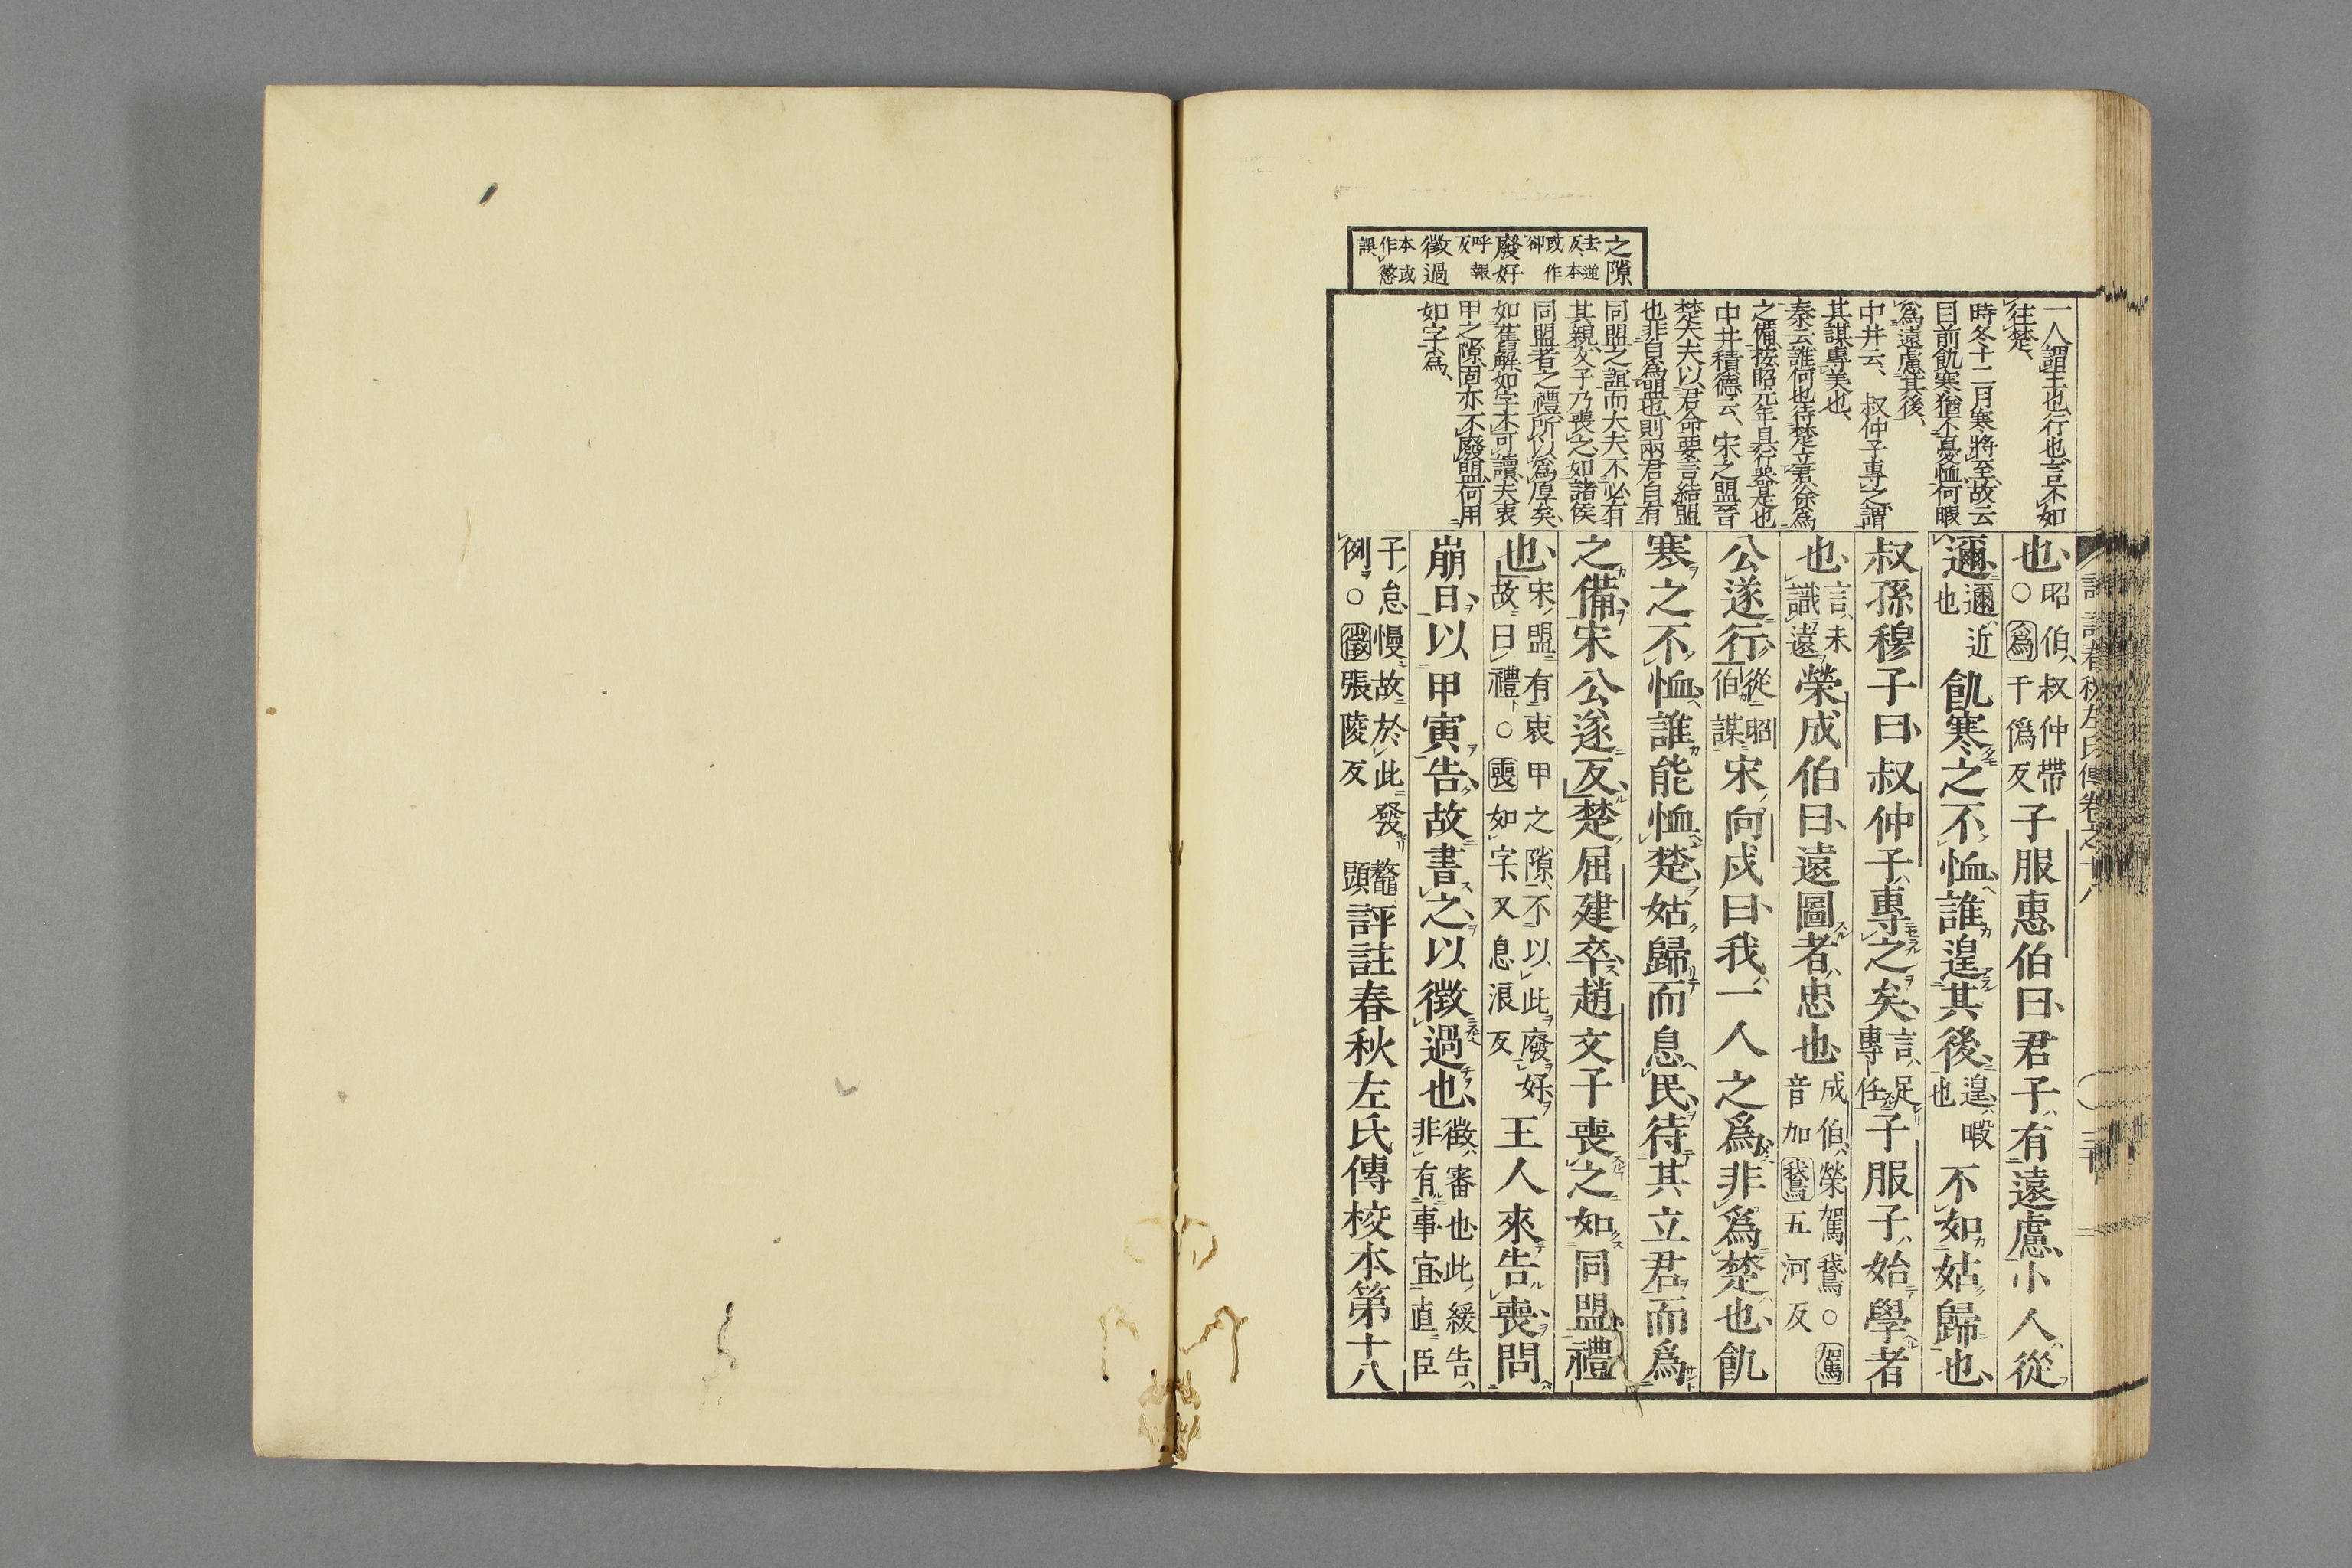 之隙
去逆反本
或作卻
廢好
呼報反
徵過
本或作懲
誤
一人謂王也行也言不如
往楚
時冬十二月寒將至故云
目前飢寒猶不憂恤何暇
爲遠慮其後
中井云、叔仲子專之謂
其謀專美也
秦云誰何也待楚立君徐爲
之備按昭元年具行器是也
中井積德云、宋之盟晉
楚大夫以君命要言結盟
也非自爲盟也則兩君自有
同盟之誼而大夫不必有
其親文子乃喪之如諸侯
同盟者之禮所以爲厚矣
如舊解如字不可讀夫衷
甲之隙固亦不廢盟何用
如字爲、
也昭伯叔仲帶○爲于僞反子服惠伯曰君子有遠慮小人從
邇邇近也飢寒之不恤誰遑其後遑暇也不如姑歸也
叔孫穆子曰叔仲子專之矣言足專任子服子始學者
也言未識遠榮成伯曰遠圖者忠也成伯榮駕鵞○駕音加鵞五河反
公遂行從昭伯謀宋向戌曰我一人之爲非爲楚也飢
寒之不恤誰能恤楚姑歸而息民待其立君而爲
之備宋公遂反楚屈建卒趙文子喪之如同盟禮
也宋盟有衷甲之隙不以此廢好故曰禮○喪如字又息浪反王人來告喪問
崩日以甲寅告故書之以徵過也徵審也此緩告非有事宜直臣
子怠慢故於此發例○徵張陵反鼇頭評註春秋左氏傳校本第十八